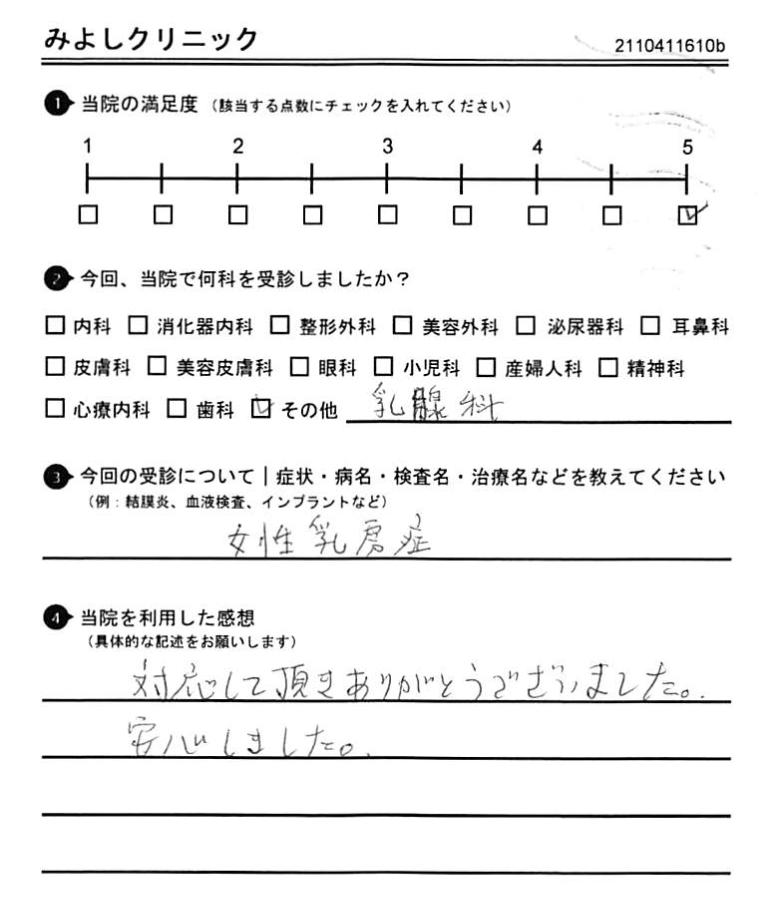 みよしクリニック 2110411610b
1 当院の満足度 (該当する点数にチェックを入れてください)
1 2 3 4 5
2 今回、当院で何科を受診しましたか?
□ 内科 □ 消化器内科 □ 整形外科 □ 美容外科 □ 泌尿器科 □ 耳鼻科
□ 皮膚科 □ 美容皮膚科 □ 眼科 □ 小児科 □ 産婦人科 □ 精神科
□ 心療内科 □ 歯科 ☑ その他 乳腺科
3 今回の受診について|症状・病名・検査名・治療名などを教えてください
(例:結膜炎、血液検査、インプラントなど)
女性乳房症
4 当院を利用した感想
(具体的な記述をお願いします)
対応して頂きありがとうございました。
安心しました。